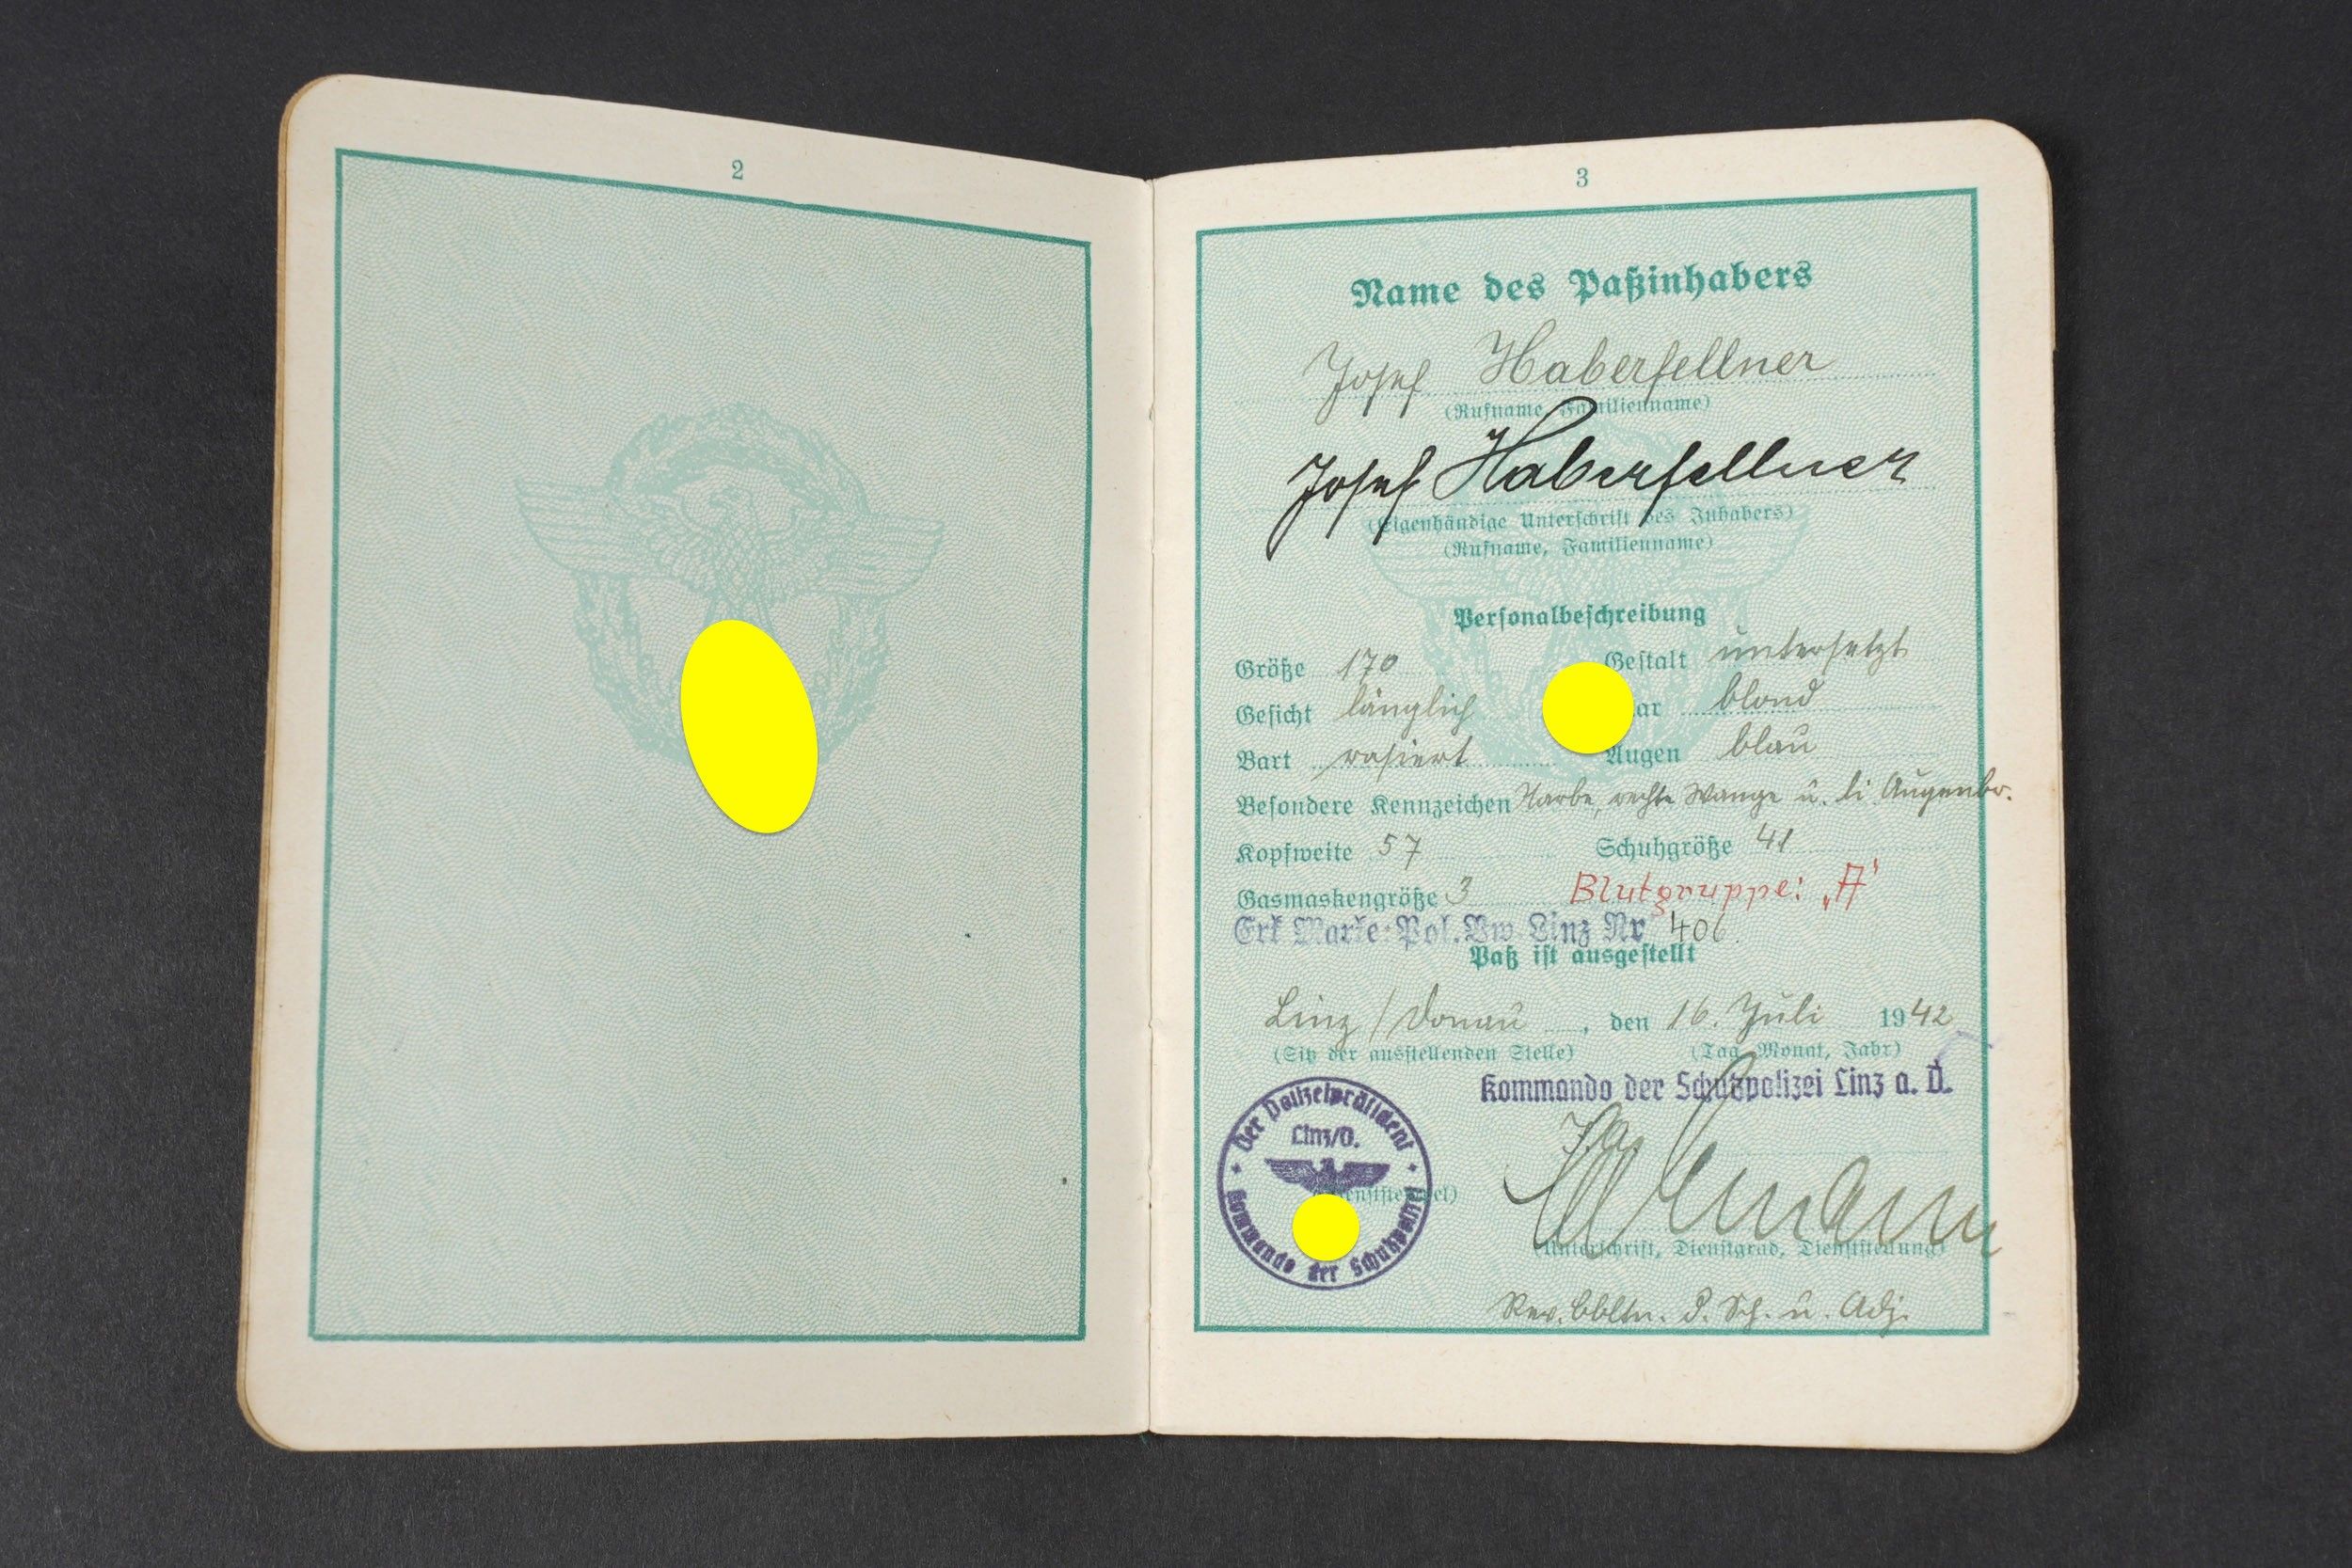 2
3
Name des Paßinhabers
Josef Haberfellner
(Rufname, Familienname)
Josef Haberfellner
(Eigenhändige Unterschrift des Inhabers)
(Rufname, Familienname)
Personalbeschreibung
Größe 170 Gestalt untersetzt
Gesicht länglich ar blond
Bart rasiert Augen blau
Besondere Kennzeichen Narbe, rechte Wange u. li Augenbr.
Kopfweite 57 Schuhgröße 41
Gasmaskengröße 3 Blutgruppe: „A‘
Erk Marke: Pol.Vw Linz Nr 406.
Paß ist ausgestellt
Linz / Donau, den 16. Juli 1942
(Sitz der ausstellenden Stelle) (Tag, Monat, Jahr)
Kommando der Schutzpolizei Linz a. D.
Der Polizeipräsident
Linz/D.
Kommando der Schutzpolizei
(Dienststempel)
J.A.
(Unterschrift, Dienstgrad, Dienststellung)
d. Sch. u. Adj.